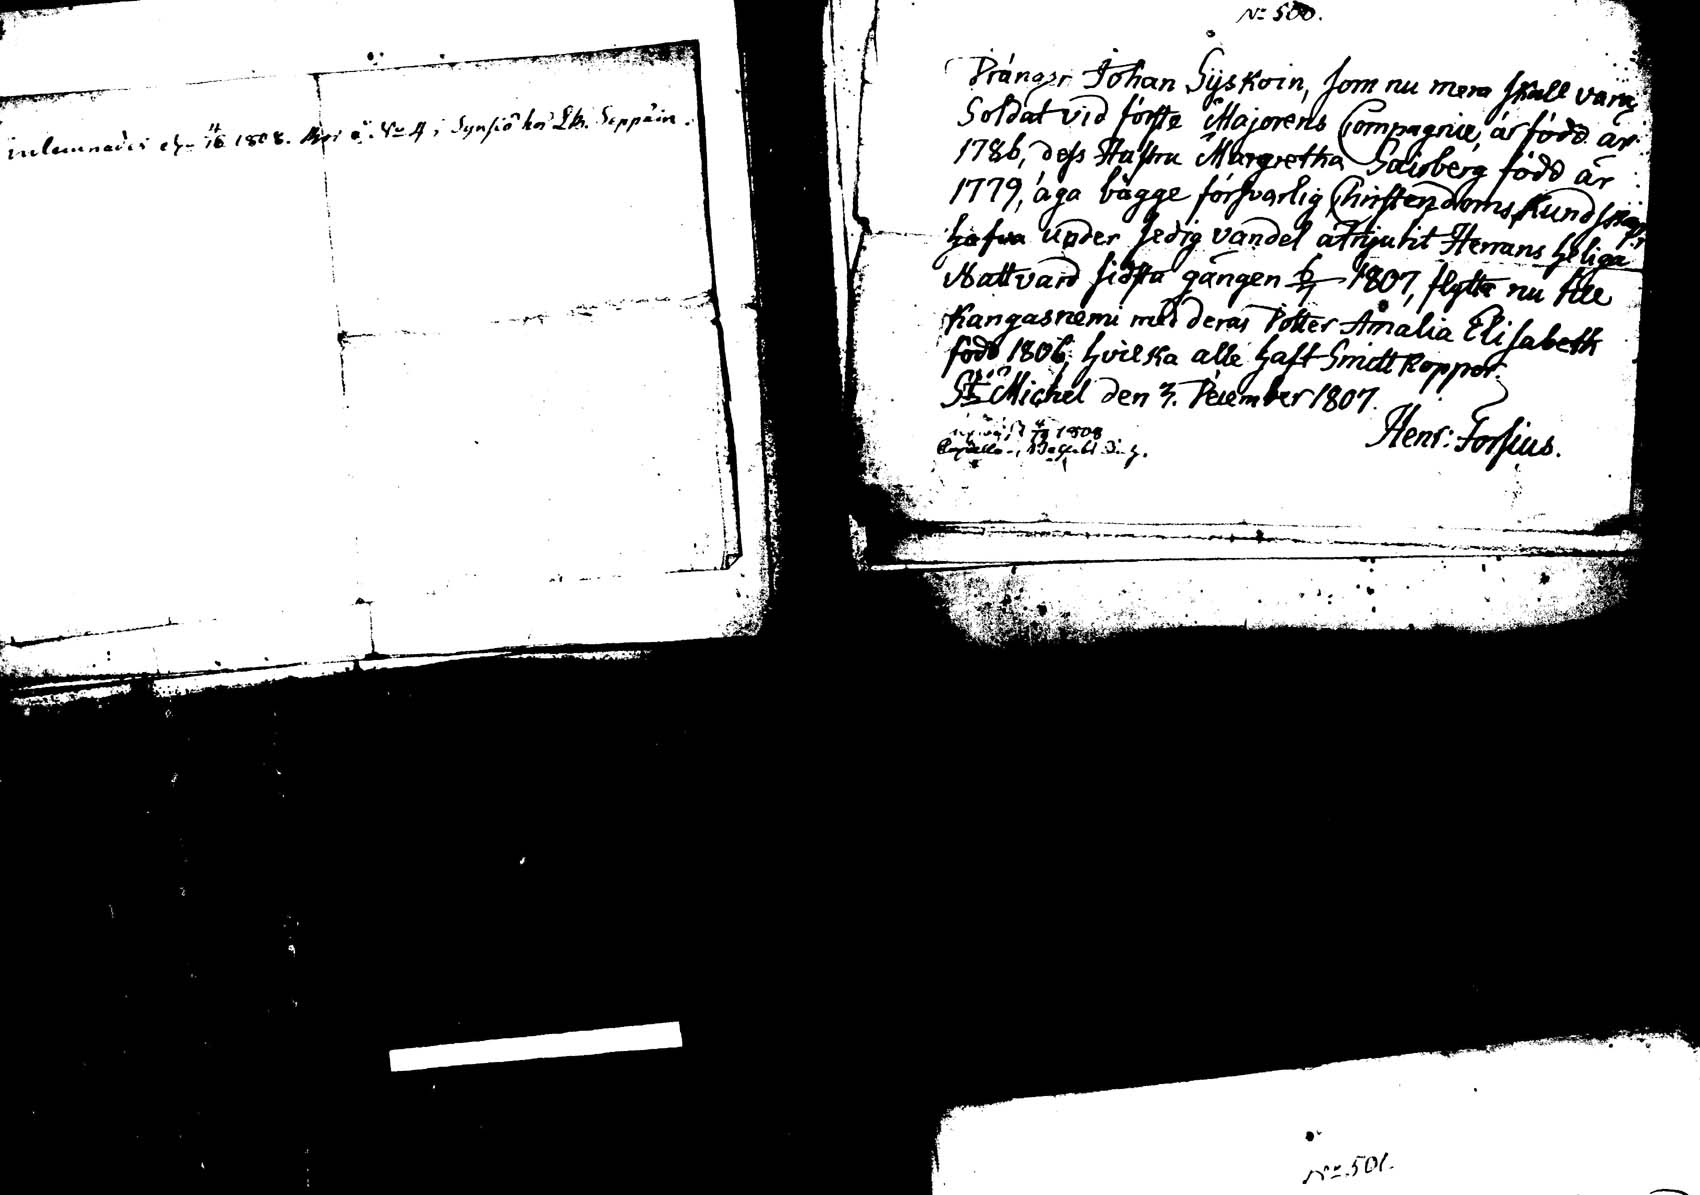 inlemnades d. 4/16 1808. Bor å No 4 i Synsiö hos Lb. Seppäin.
No 500.
Drängen Johan Syskoin, som nu mera skall vara
Soldat vid förste Majorens Compagnie, är född år
1786, dess Hustru Margretha Gaisberg född år
1779, äga bägge försvarlig Christendoms Kundskap,
hafva under sedig vandel åtnjutit Herrans heliga
Nattvard sidsta gången 1807, flytta nu till
Kangasniemi med deras Dotter Amalia Elisabeth
född 1806, hvilka alle haft Smittkoppor.
St Michel den 3. December 1807.
Henr: Forsius.
1808
No 501.